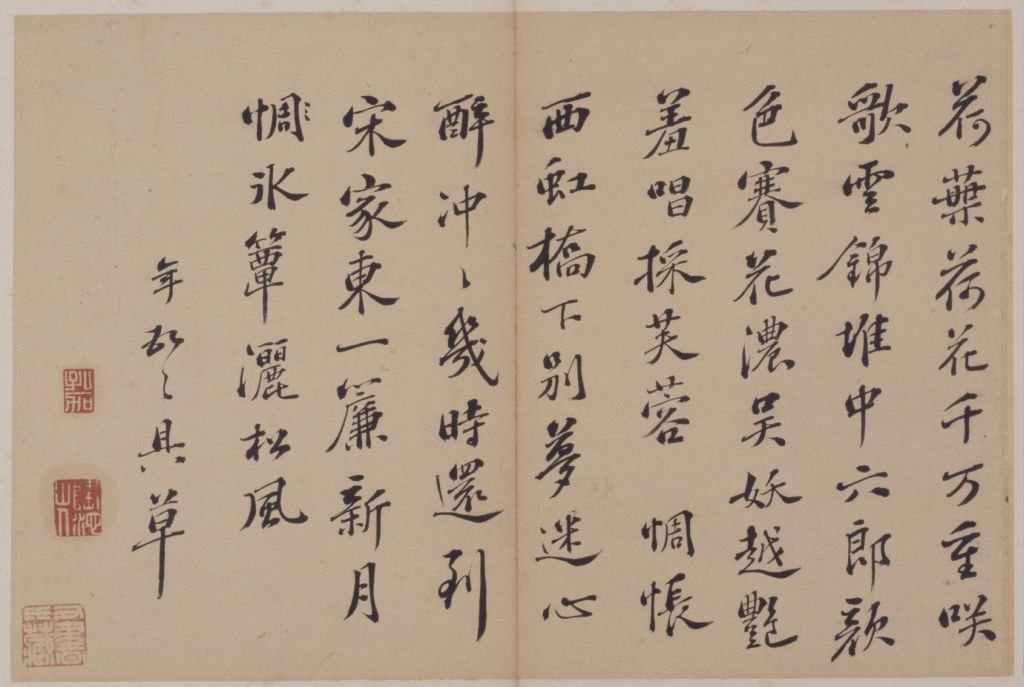 荷葉荷花千万重咲
歌雲錦堆中六郎顔
色賽花濃吴妖越艷
羞唱採芙蓉 惆悵
西虹橋下別夢迷心
醉冲〻幾時還到
宋家東一簾新月
惆氷簟灑松風
年 具草